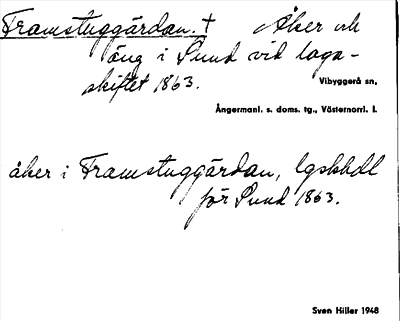 Framstuggärdan. † Åker och
äng i Sund vid laga-
skiftet 1863.
Vibyggerå sn,
Ångermanl. s. doms. tg., Västernorrl. l.
åker i Framstuggärdan, lgskhdl
för Sund 1863.
Sven Hiller 1948